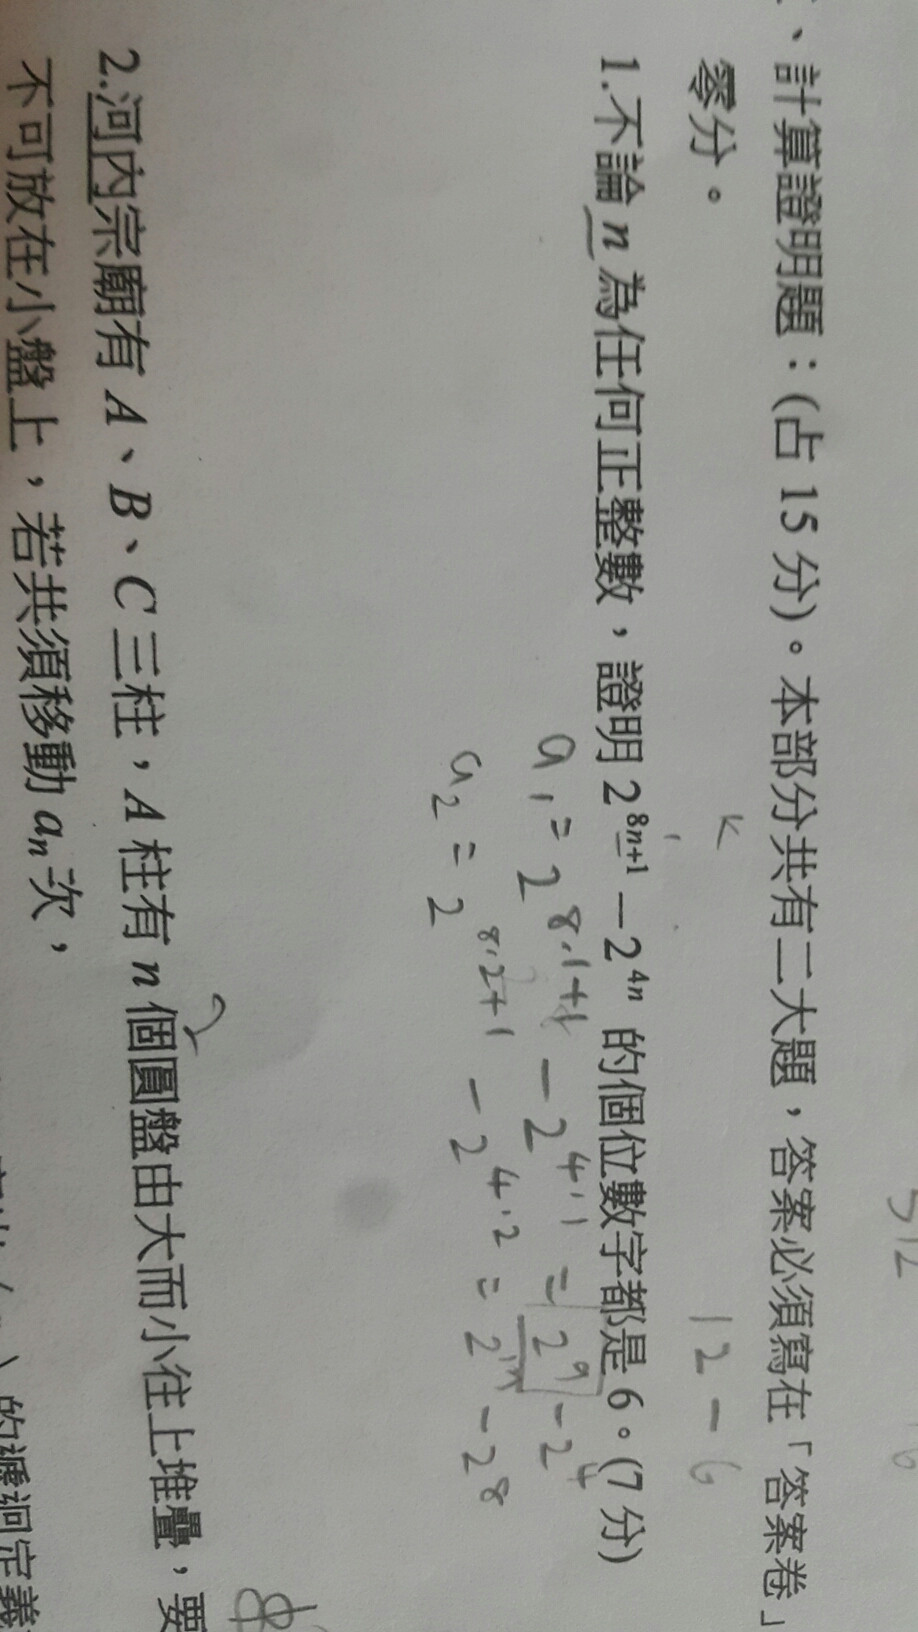 、計算證明題：(占 15 分)。本部分共有二大題，答案必須寫在「答案卷」
零分。
12-6
1.不論 n 為任何正整數，證明 2^{8n+1}－2^{4n} 的個位數字都是 6。(7 分)
a_1 = 2^{8·1+1} - 2^{4·1} = 2^9 - 2^4
a_2 = 2^{8·2+1} - 2^{4·2} = 2^{17} - 2^8
2.河內宗廟有 A、B、C 三柱，A 柱有 n 個圓盤由大而小往上堆疊，要
不可放在小盤上，若共須移動 a_n 次，
的遞迴定義